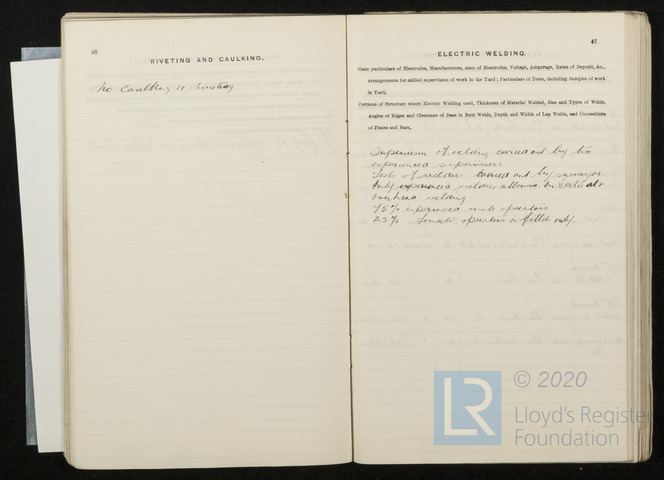 46
RIVETING AND CAULKING.
No Caulking or riveting
47
ELECTRIC WELDING.
State particulars of Electrodes, Manufacturers, sizes of Electrodes, Voltage, Amperage, Rates of Deposit, &c.,
arrangements for skilled supervision of work in the Yard; Particulars of Tests, including Samples of work
in Yard.
Portions of Structure where Electric Welding used, Thickness of Material Welded, Size and Types of Welds,
Angles of Edges and Clearance of Bars in Butt Welds, Depth and Width of Lap Welds, and Connections
of Plates and Bars.
Supervision of welding carried out by two
experienced supervisors
Tests of welders carried out by surveyor
Only experienced welders allowed on vertical or
overhead welding
75% experienced male operators
25% female operators on fillets only.
LR
© 2020
Lloyd's Register
Foundation